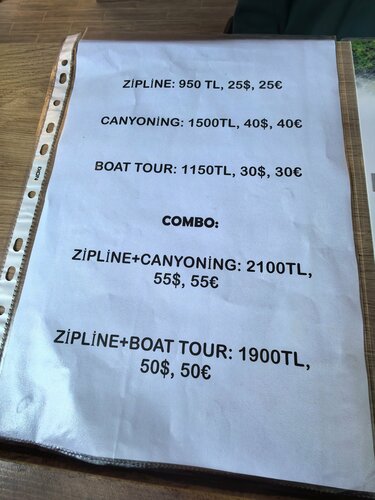 ZİPLİNE: 950 TL, 25$, 25€
CANYONİNG: 1500TL, 40$, 40€
BOAT TOUR: 1150TL, 30$, 30€
COMBO:
ZİPLİNE+CANYONİNG: 2100TL,
55$, 55€
ZİPLİNE+BOAT TOUR: 1900TL,
50$, 50€